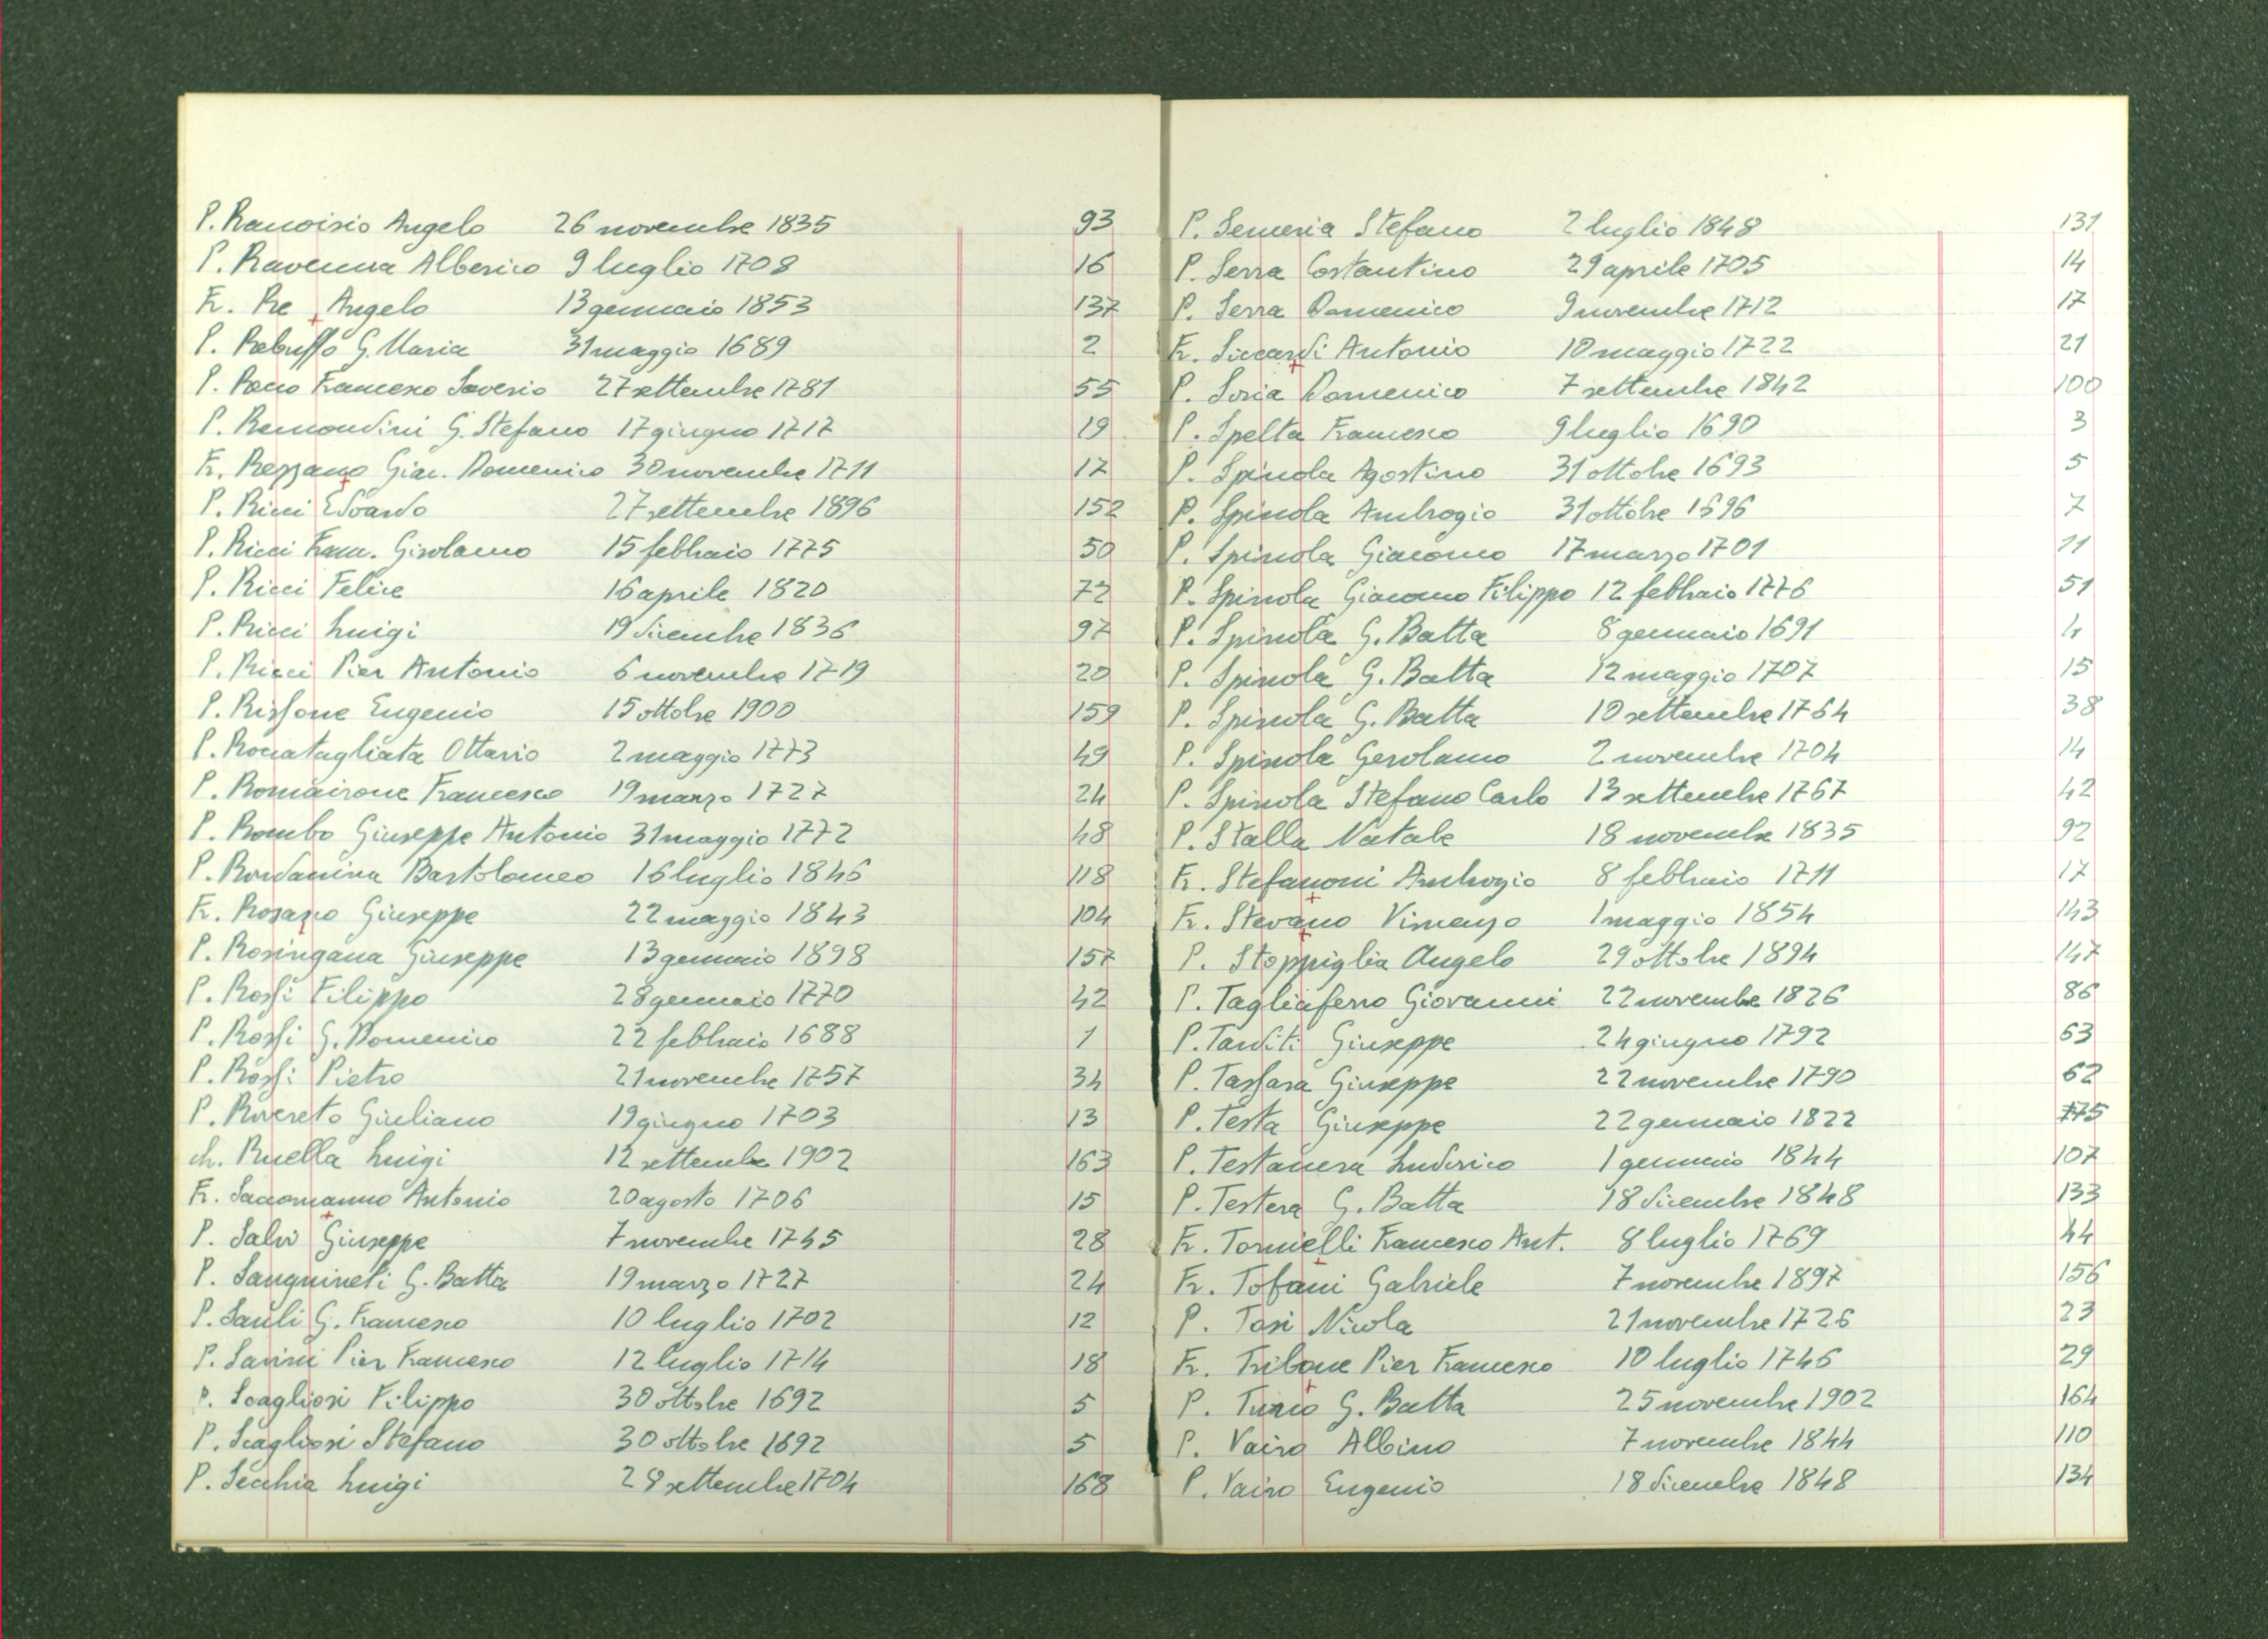 P. Ranoisio Angelo 26 novembre 1835 93
P. Ravenna Alberico 9 luglio 1708 16
Fr. Re Angelo 13 gennaio 1853 137
P. Rebuffo G. Maria 31 maggio 1689 2
P. Francesco Saverio 27 settembre 1781 55
P. Remondini G. Stefano 17 giugno 1717 19
Fr. Rezzano Giac. Domenico 30 novembre 1711 17
P. Ricci Edoardo 27 settembre 1896 152
P. Ricci Franc. Girolamo 15 febbraio 1775 50
P. Ricci Felice 16 aprile 1820 72
P. Ricci Luigi 19 dicembre 1836 97
P. Ricci Pier Antonio 6 novembre 1719 20
P. Rissone Eugenio 15 ottobre 1900 159
P. Roccatagliata Ottavio 2 maggio 1773 49
P. Romairone Francesco 19 marzo 1727 24
P. Rombo Giuseppe Antonio 31 maggio 1772 48
P. Rondanina Bartolomeo 16 luglio 1846 118
Fr. Rosario Giuseppe 22 maggio 1843 104
P. Rosingana Giuseppe 13 gennaio 1898 157
P. Rossi Filippo 28 gennaio 1770 42
P. Rossi G. Domenico 22 febbraio 1688 1
P. Rossi Pietro 21 novembre 1757 34
P. Rovereto Giuliano 19 giugno 1703 13
ch. Ruella Luigi 12 settembre 1902 163
Fr. Saccomanno Antonio 20 agosto 1706 15
P. Salvi Giuseppe 7 novembre 1745 28
P. Sanguineti G. Batta 19 marzo 1727 24
P. Sauli G. Francesco 10 luglio 1702 12
P. Savini Pier Francesco 12 luglio 1714 18
P. Scagliosi Filippo 30 ottobre 1692 5
P. Scagliosi Stefano 30 ottobre 1692 5
P. Secchia Luigi 28 settembre 1704 168
P. Semeria Stefano 2 luglio 1848 131
P. Serra Costantino 29 aprile 1705 14
P. Serra Domenico 9 novembre 1712 17
Fr. Siccardi Antonio 10 maggio 1722 21
P. Soria Domenico 7 settembre 1842 100
P. Spelta Francesco 9 luglio 1690 3
P. Spinola Agostino 31 ottobre 1693 5
P. Spinola Ambrogio 31 ottobre 1696 7
P. Spinola Giacomo 17 marzo 1701 11
P. Spinola Giacomo Filippo 12 febbraio 1776 51
P. Spinola G. Batta 8 gennaio 1691 4
P. Spinola G. Batta 12 maggio 1707 15
P. Spinola G. Batta 10 settembre 1764 38
P. Spinola Gerolamo 2 novembre 1704 14
P. Spinola Stefano Carlo 13 settembre 1767 42
P. Stalla Natale 18 novembre 1835 92
Fr. Stefanoni Ambrogio 8 febbraio 1711 17
Fr. Stevano Vincenzo 1 maggio 1854 143
P. Stoppiglia Angelo 29 ottobre 1894 147
P. Tagliaferro Giovanni 22 novembre 1826 86
P. Tarditi Giuseppe 24 giugno 1792 63
P. Tassara Giuseppe 22 novembre 1790 62
P. Testa Giuseppe 22 gennaio 1822 75
P. Testanera Ludovico 1 gennaio 1844 107
P. Testera G. Batta 18 dicembre 1848 133
Fr. Tornielli Francesco Ant. 8 luglio 1769 44
Fr. Tofani Gabriele 7 novembre 1897 156
P. Tosi Nicola 21 novembre 1726 23
Fr. Tribone Pier Francesco 10 luglio 1746 29
P. Turio G. Batta 25 novembre 1902 164
P. Vairo Albino 7 novembre 1844 110
P. Vairo Eugenio 18 dicembre 1848 134